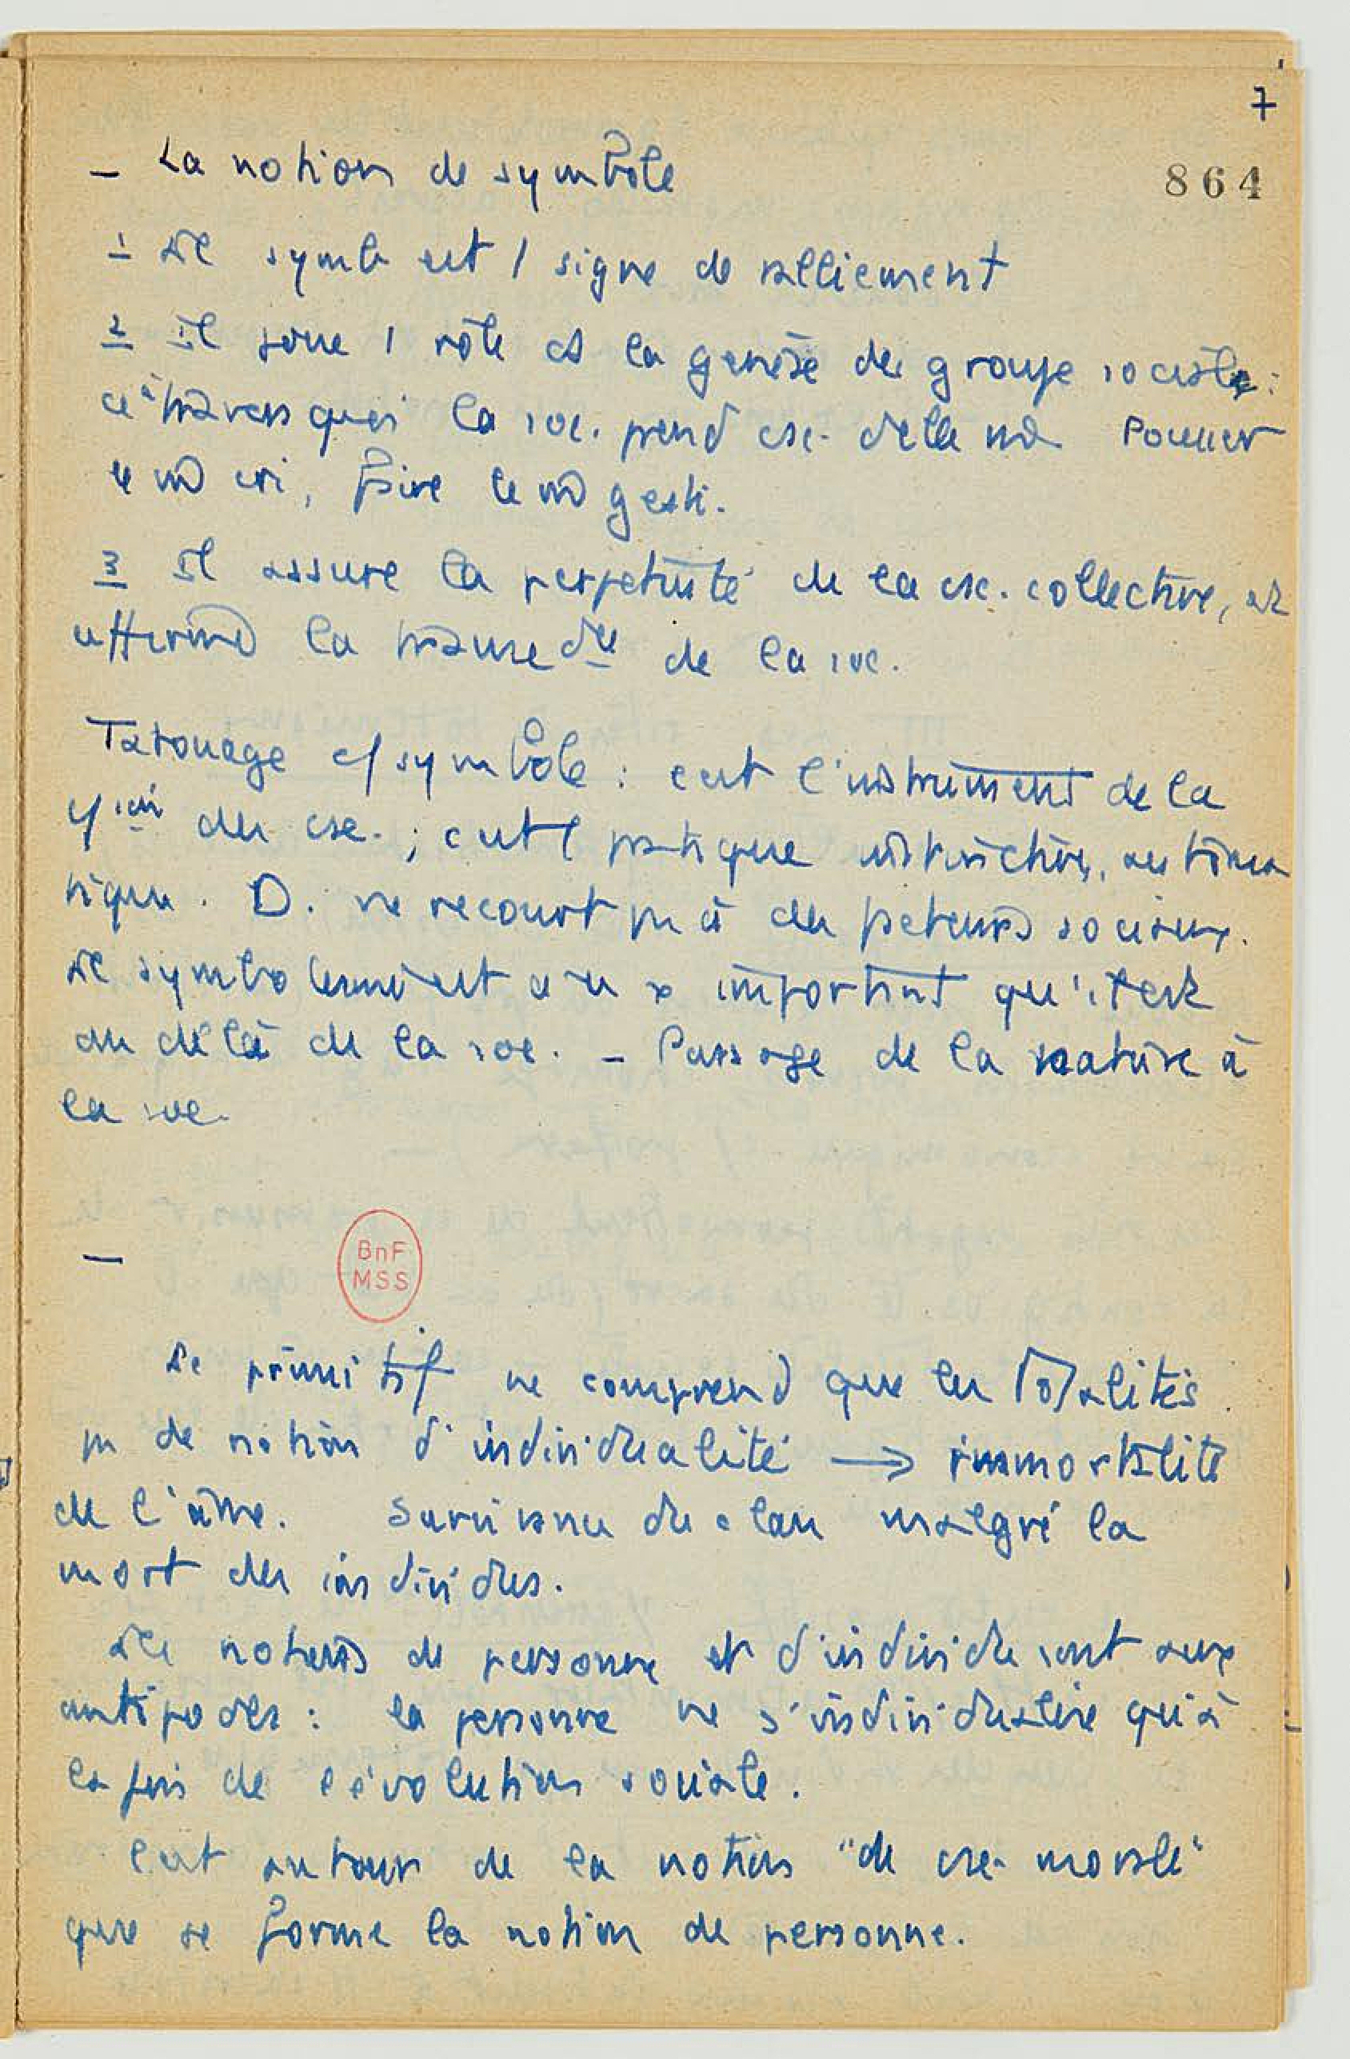 7
864
– La notion de symbole
1 Le symb est 1 signe de ralliement
2 Il joue 1 rôle ds la genèse des groupes sociale :
à travers quoi la soc. prend csc. d'elle m̂. Pousser
le m̂ cri, faire le m̂ geste.
3 Il assure la perpétuité de la csc. collective, et
la de la soc.
Tatouage c/ symbole : c'est l'instrument de la
des csc. ; c'est 1 pratique instinctive, automa
tique. D. ne recourt pas à des facteurs sociaux.
Le symbolisme est important qu'il est
au delà de la soc. – Passage de la nature à
la soc.
–
BnF
MSS
Le primitif ne comprend que les totalités.
pas de notion d'individualité → immortalité
de l'âme. Survivance du clan malgré la
mort des individus.
Les notions de personne et d'individu sont aux
antipodes : la personne ne s'individualise qu'à
la fin de l'évolution sociale.
C'est autour de la notion "de csc. morale"
que se forme la notion de personne.